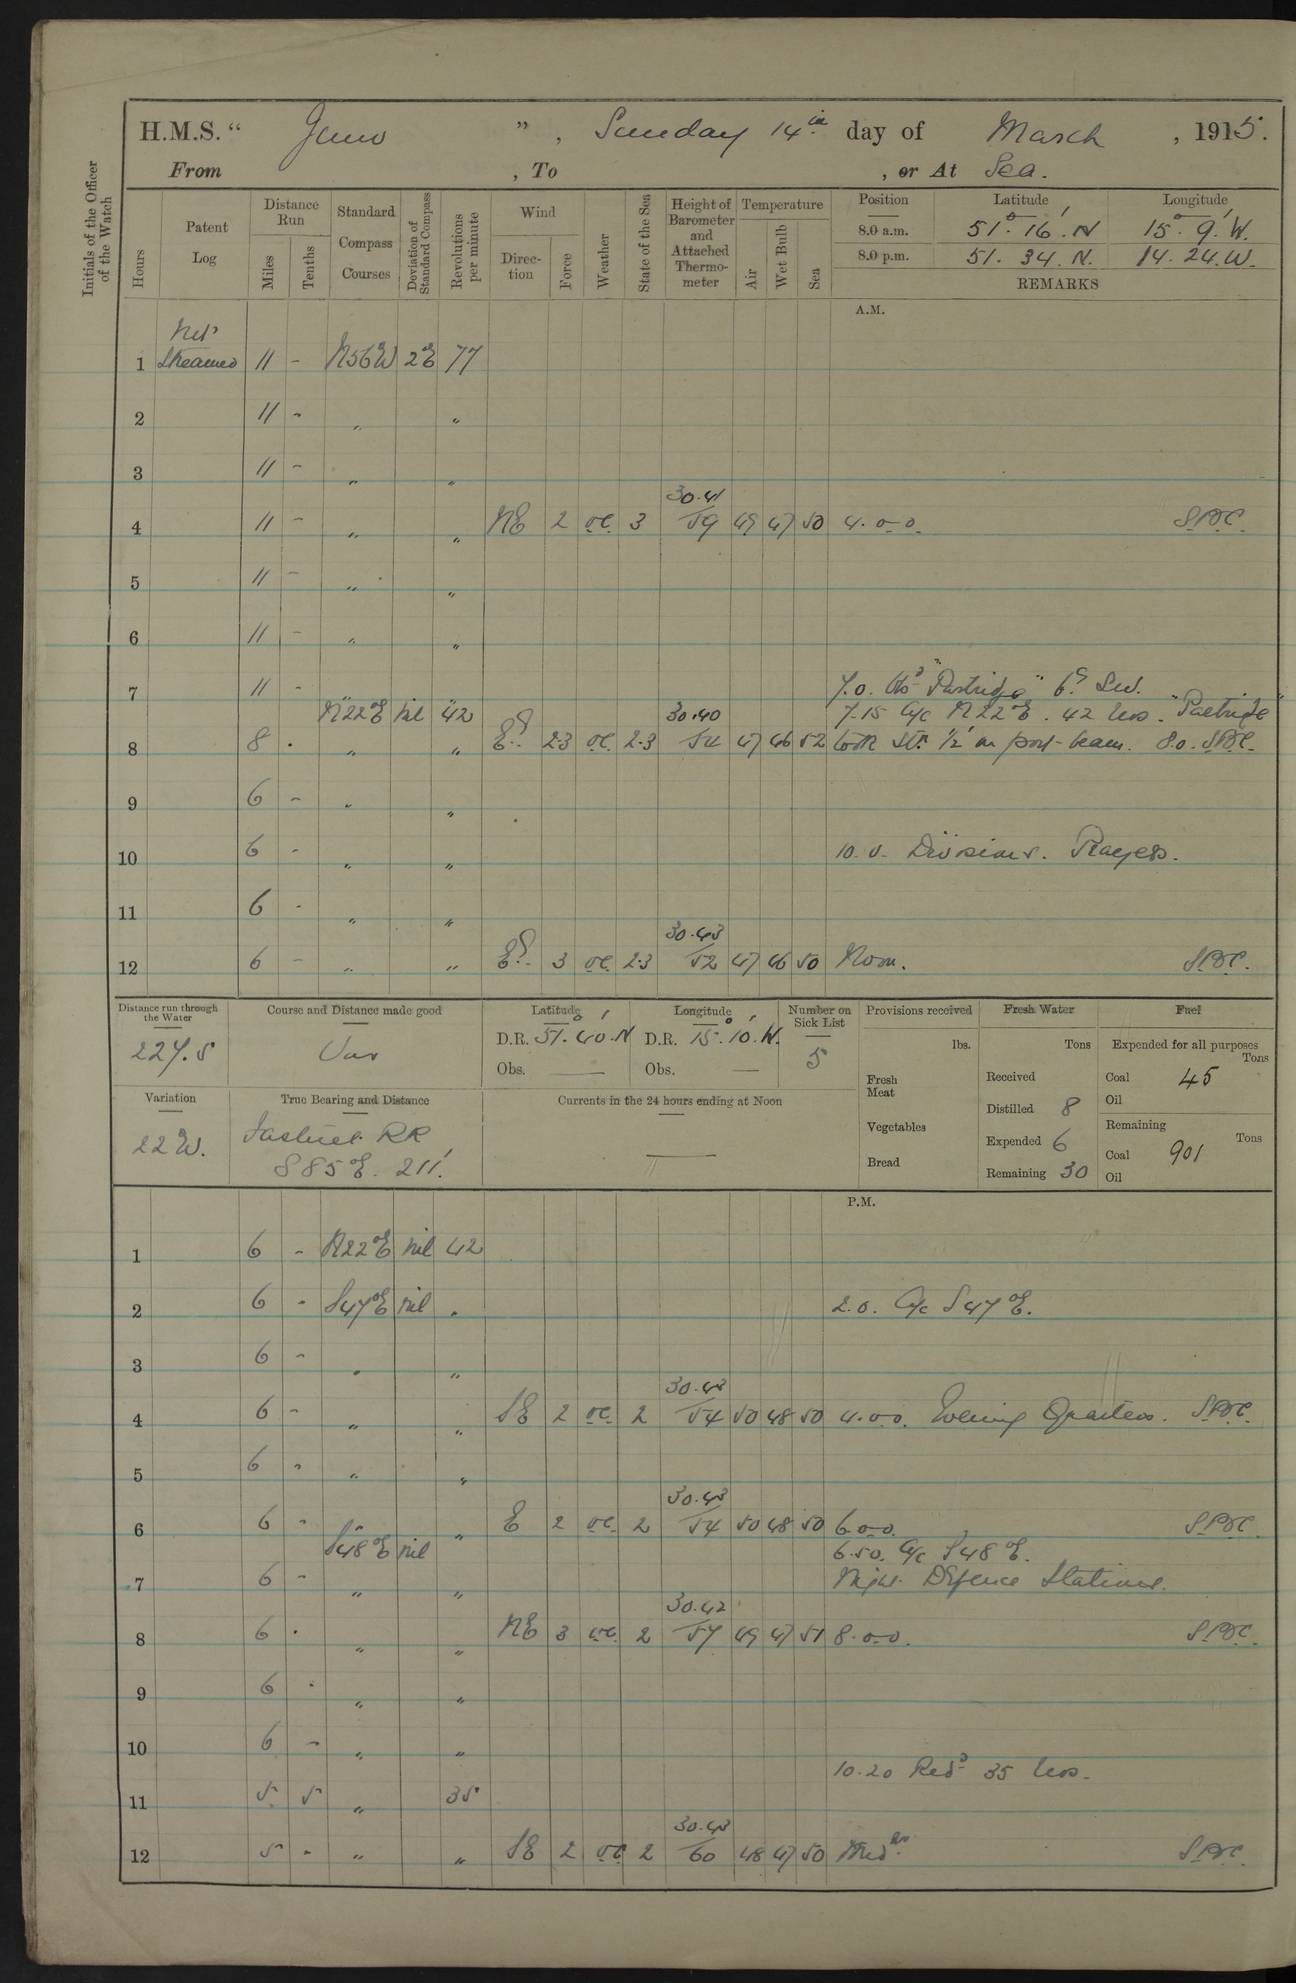 H.M.S. “ Juno ” , Sunday 14th day of March , 1915.
From , To , or At Sea.
Initials of the Officer of the Watch
Hours Patent Log Distance Run Miles Tenths Standard Compass Courses Deviation of Standard Compass Revolutions per minute Wind Direction Force Weather State of the Sea Height of Barometer and Attached Thermometer Temperature Air Wet Bulb Sea
Position Latitude Longitude
8.0 a.m. 51° 16' N 15° 9' W.
8.0 p.m. 51. 34. N. 14. 24. W.
REMARKS
A.M.
1 Steamed 11 - N56W 2°E 77
2 11 - " "
3 11 - " "
30.41
4 11 - " " NE 2 oc. 3 59 49 47 50 4.0-0.
5 11 - " "
6 11 - " "
7 11 - 7.0. "Partridge"
N22°E nil 42 30.40 7.15 A/c N22°E. 42 revs. "Partridge"
8 8 . " " E 2.3 oc. 2.3 54 47 46 52 took stn ½' on port beam. 8.0.
9 6 - " "
10 6 - " " 10.0. Divisions. Prayers.
11 6 - " "
30.43
12 6 - " " E 3 oc. 2.3 52 47 46 50 Noon.
Distance run through the Water Course and Distance made good Latitude Longitude Number on Sick List Provisions received Fresh Water Fuel
227.5 Var D.R. 51° 40' N D.R. 15° 10' W. 5
Obs. — Obs. —
lbs. Tons Expended for all purposes Tons
Fresh Meat Received Coal 45
Distilled 8 Oil
Variation True Bearing and Distance Currents in the 24 hours ending at Noon
22 W. Fastnet RR
S85°E. 211'.
Vegetables Expended 6 Remaining Tons
Coal 901
Bread Remaining 30 Oil
P.M.
1 6 - N22°E nil 42
2 6 - S47°E nil " 2.0. A/c S47°E.
3 6 - " "
30.43
4 6 - " " SE 2 oc. 2 54 50 48 50 4.0-0. Evening Quarters.
5 6 - " "
30.43
6 6 - " " E 2 oc. 2 54 50 48 50 6.0-0.
S48°E nil 6.50. A/c S48°E.
7 6 - " " Night Defence Stations.
30.42
8 6 . " " NE 3 oc. 2 57 49 47 51 8.0-0.
9 6 - " "
10 6 - " "
10.20 Redd 35 revs.
11 5 5 " 35
30.43
12 5 - " " SE 2 oc. 2 60 48 47 50 Midt